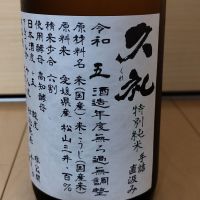 久礼
くれ
特別純米 手詰直汲み
令和 五 酒造年度無ろ過無調整
原材料名 米(国産)米こうじ(国産米)
原料米 愛媛県産 松山三井 百%
精米歩合 六割
使用酵母 高知酵母
日本酒度